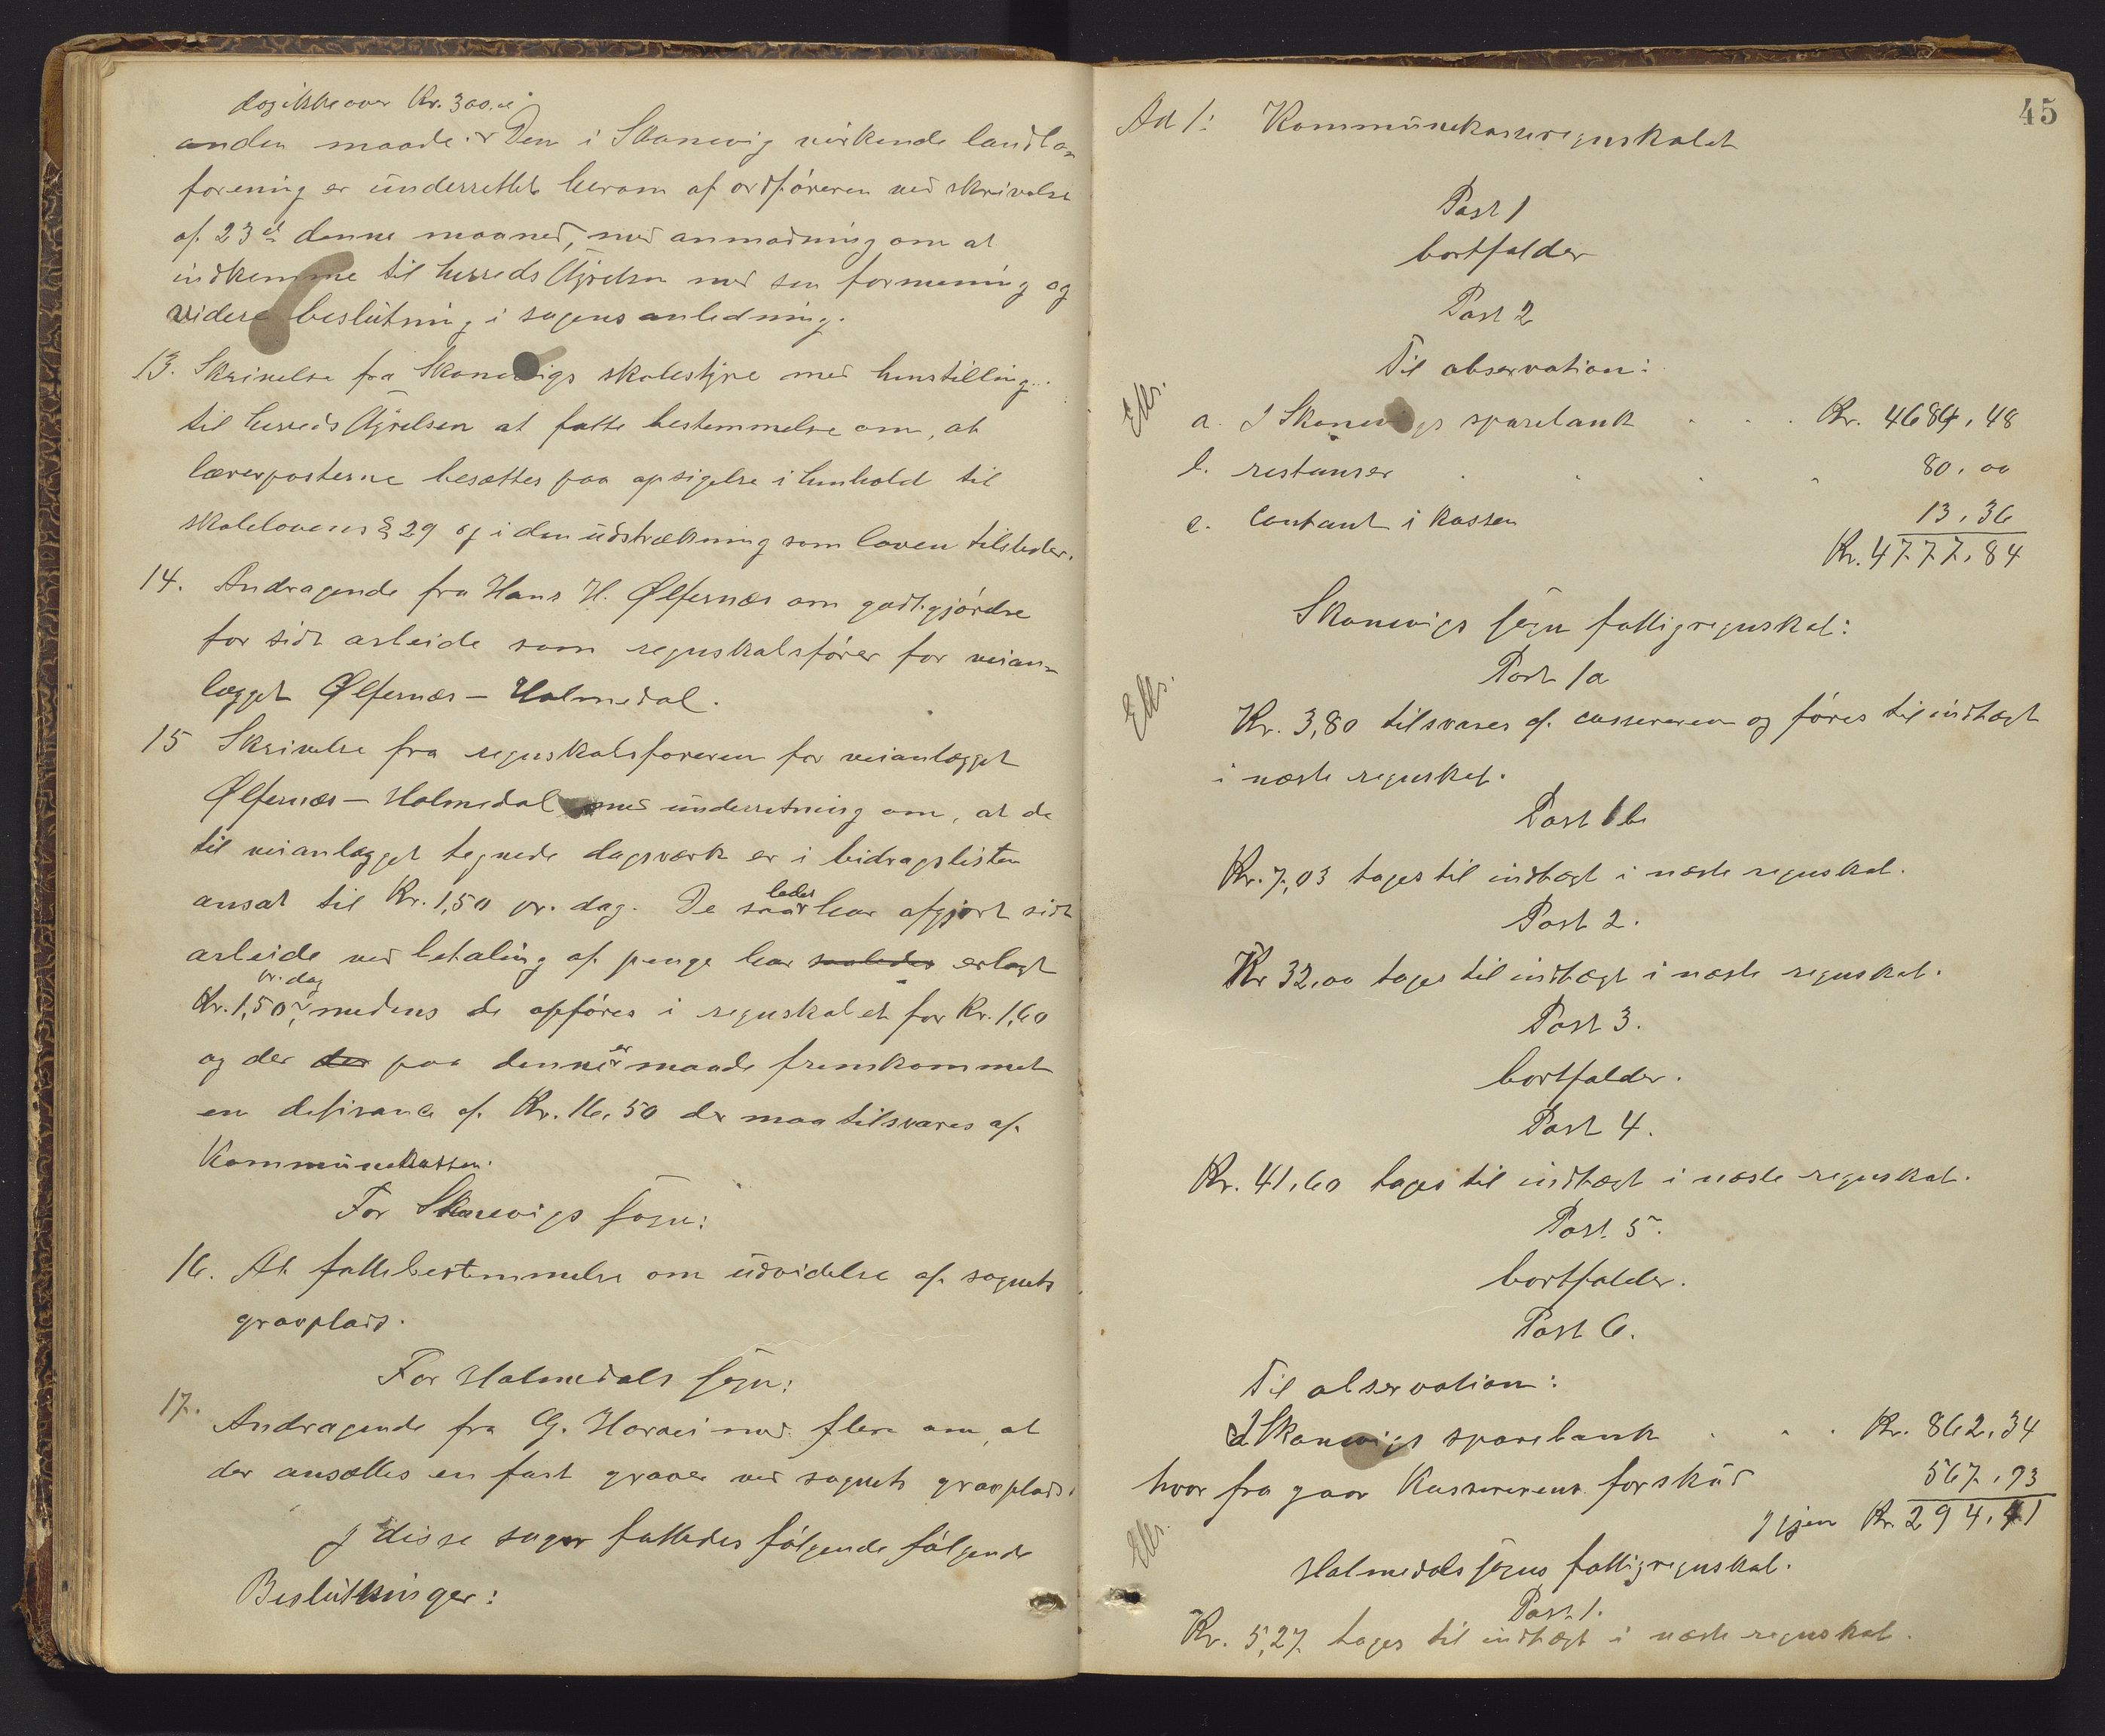 dog ikke over Kr. 300.
anden maade. Den i Skonevig virkende landbo-
forening er underrettet herom af ordføreren ved skrivelse
af 23de denne maaned, med anmodning om at
indkomme til herredsstyrelsen med sin formening og
videre beslutning i sagens anledning.
13. Skrivelse fra Skonevigs skolestyre med henstilling
til herredsstyrelsen at fatte bestemmelse om, at
lærerposterne besættes paa opsigelse i henhold til
skolelovens § 29 og i den udstrækning som loven tilsteder.
14. Andragende fra Hans H. Ølfernæs om godtgjørelse
for sidt arbeide som regnskabsfører for veian-
lægget Ølfernæs - Holmedal.
15 Skrivelse fra regnskabsføreren for veianlægget
Ølfernæs - Holmedal med underretning om, at de
til veianlægget tegnede dagsværk er i bidragslisten
ansat til Kr. 1,50 pr. dag. De saaledes har afgjort sidt
arbeide ved betaling af penge har saaledes erlagt
Kr. 1,50 pr. dag, medens de opføres i regnskabet for Kr. 1,60
og der der paa denne er maade fremkommet
en defirance af Kr. 16,50 der maa tilsvares af
Kommunekassen.
For Skonevigs sogn:
16. At fatte bestemmelse om udvidelse af sognets
gravplads.
For Holmedals sogn:
17. Andragende fra G. Haraei med flere om, at
der ansættes en fast graver ved sognets gravplads.
I disse sager fattedes følgende følgende
Beslutninger:
45
Ad 1: Kommunekasseregnskabet
Post 1
bortfalder
Post 2
Til observation:
a. I Skonevigs sparebank . . . Kr. 4684,48
b. restanser . . . . 80,00
c. Contant i kassen 13,36
Kr. 4777,84
Skonevigs sogns fattigregnskab:
Post 1a
Kr. 3,80 tilsvares af cassereren og føres til indtægt
i næste regnskab.
Post 1b
Kr. 7,03 tages til indtægt i næste regnskab.
Post 2.
Kr 32,00 tages til indtægt i næste regnskab.
Post 3.
bortfalder.
Post 4.
Kr. 41,60 tages til indtægt i næste regnskab.
Post 5.
bortfalder.
Post 6.
Til observation:
I Skonevigs sparebank . . . Kr. 862,34
hvor fra gaar Kassererens forskud 567,93
Igjen Kr. 294,41
Holmedals sogns fattigregnskab.
Post 1.
Kr. 5,27 tages til indtægt i næste regnskab.